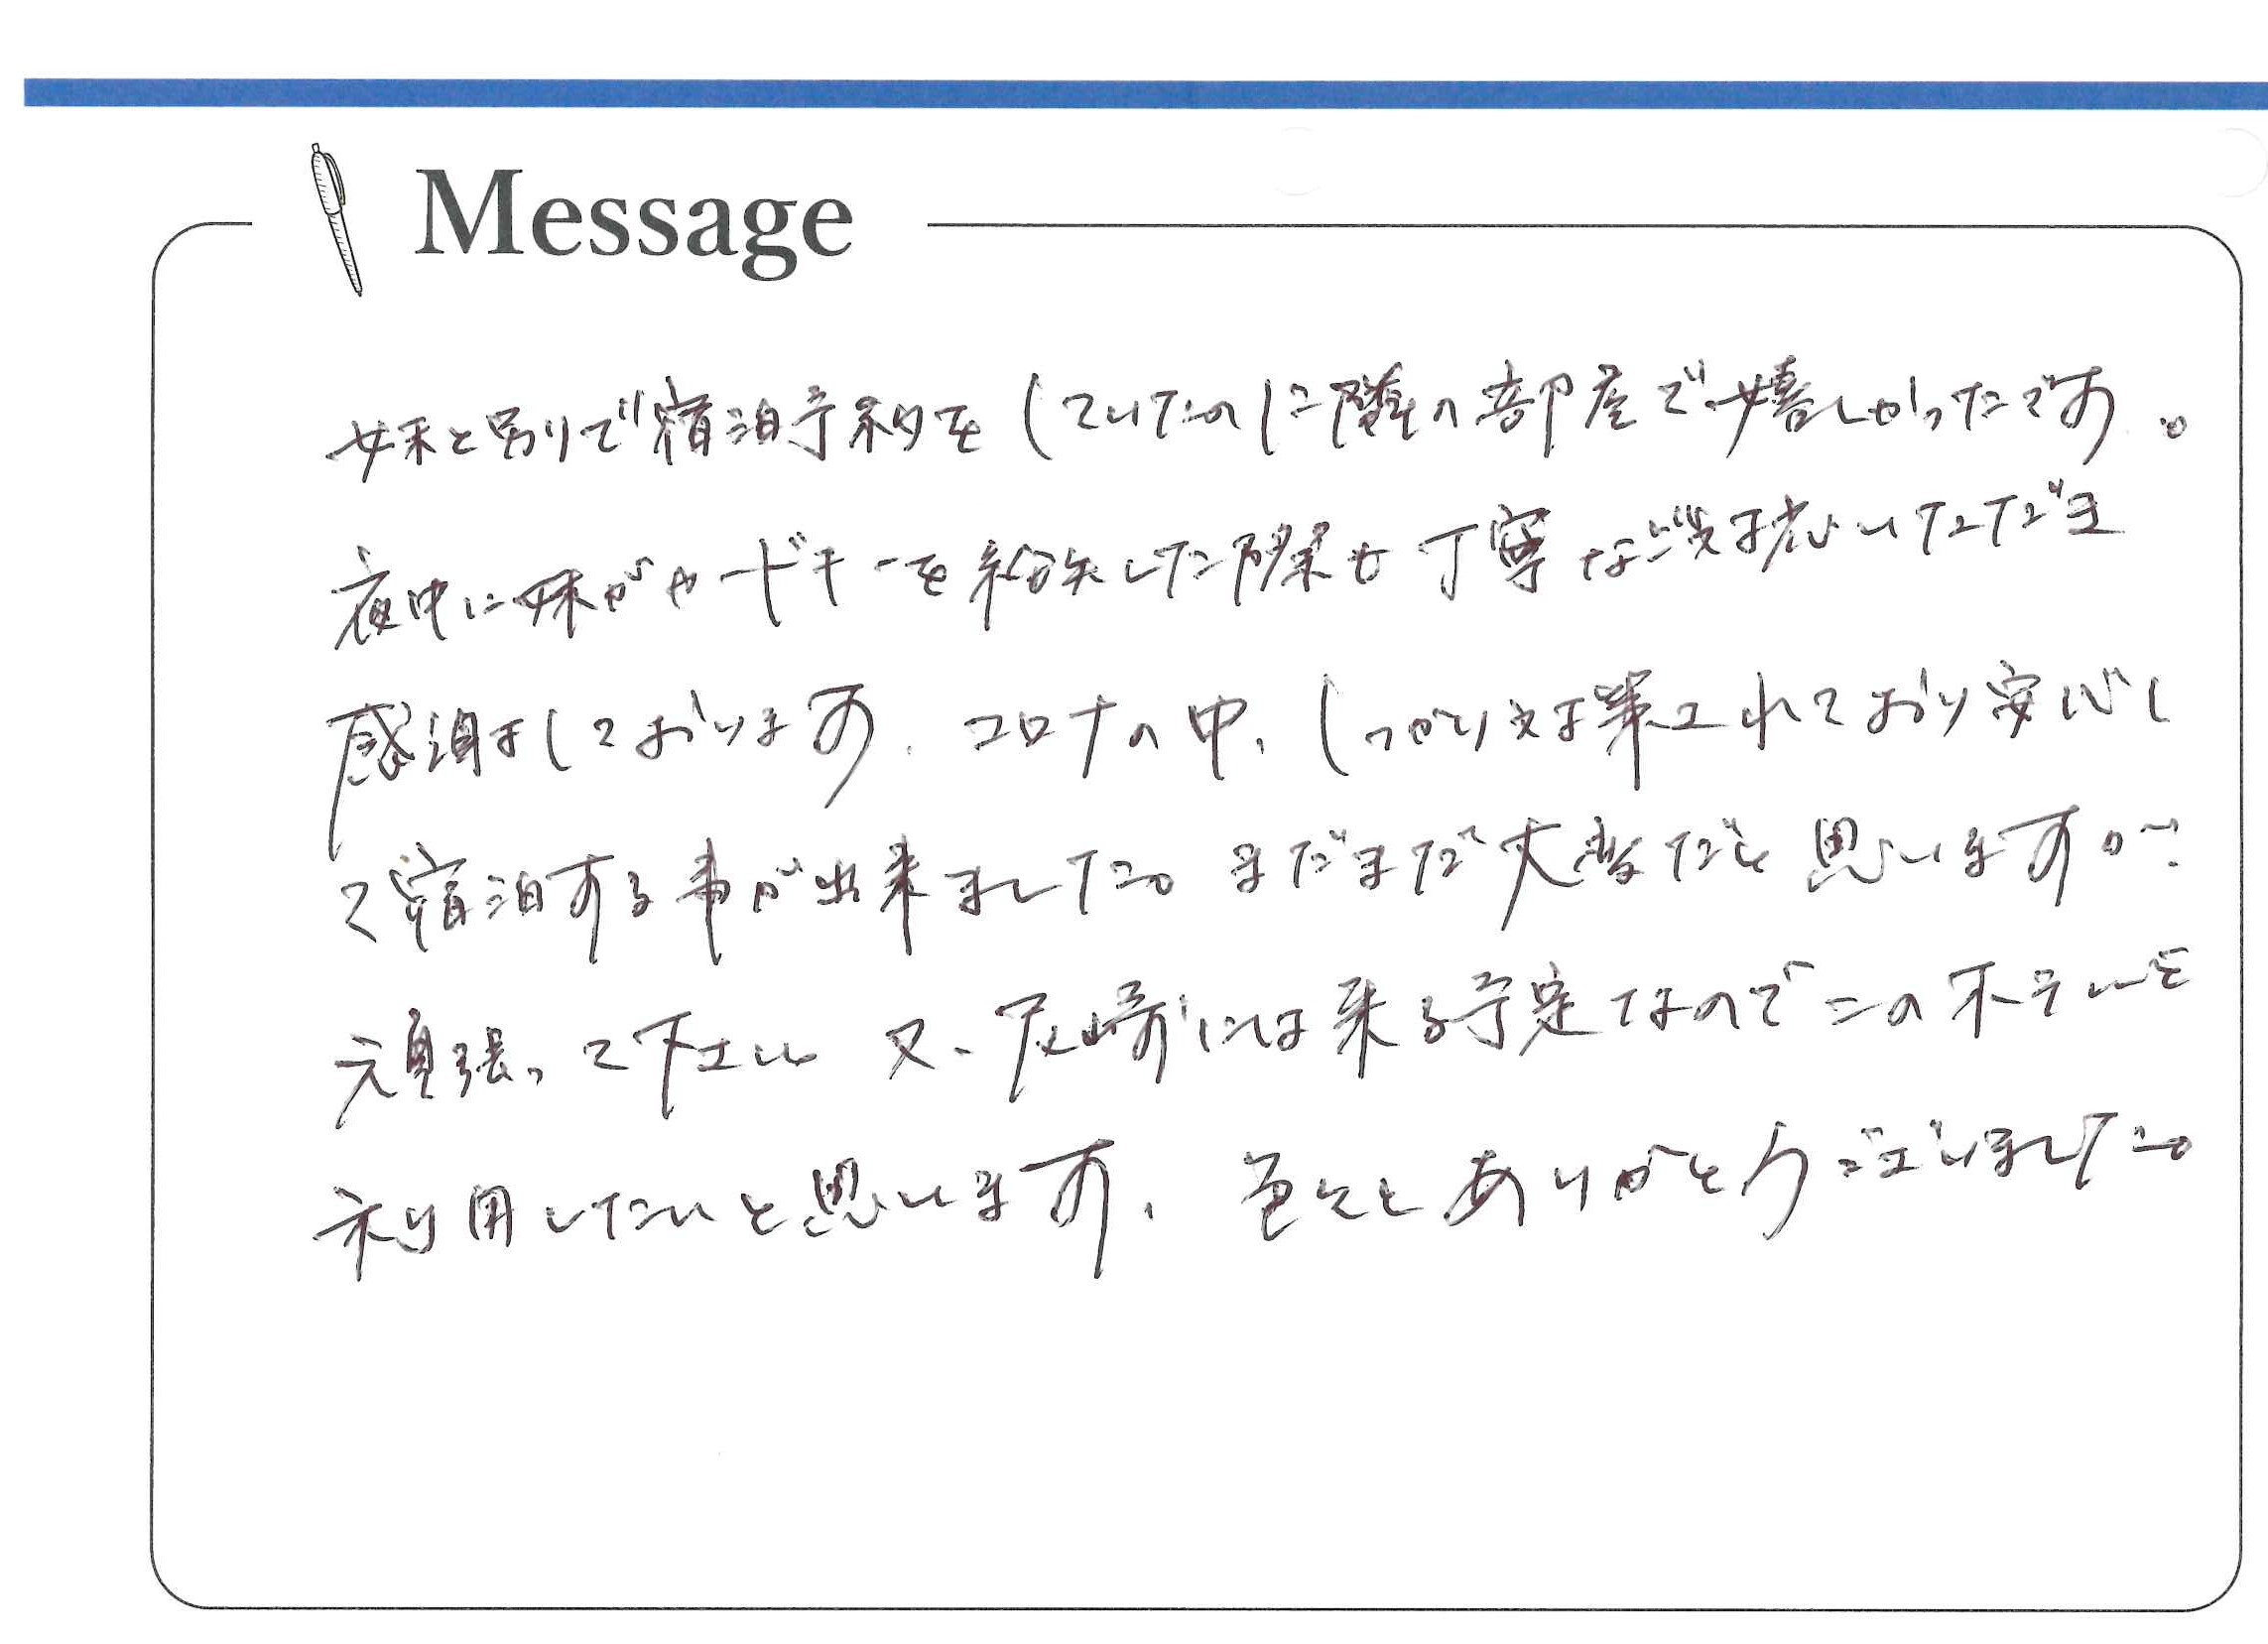 Message
妹と別りで宿泊予約をしていたのに隣の部屋で嬉しかったです。
夜中に妹がカードキーを紛失した際も丁寧な対応いただき
感謝しております。コロナの中、しっかり対策されており安心し
て宿泊する事が出来ました。まだまだ大変だと思いますが
頑張って下さい 又、尼崎には来る予定なのでこのホテルを
利用したいと思います。色々とありがとうございました。